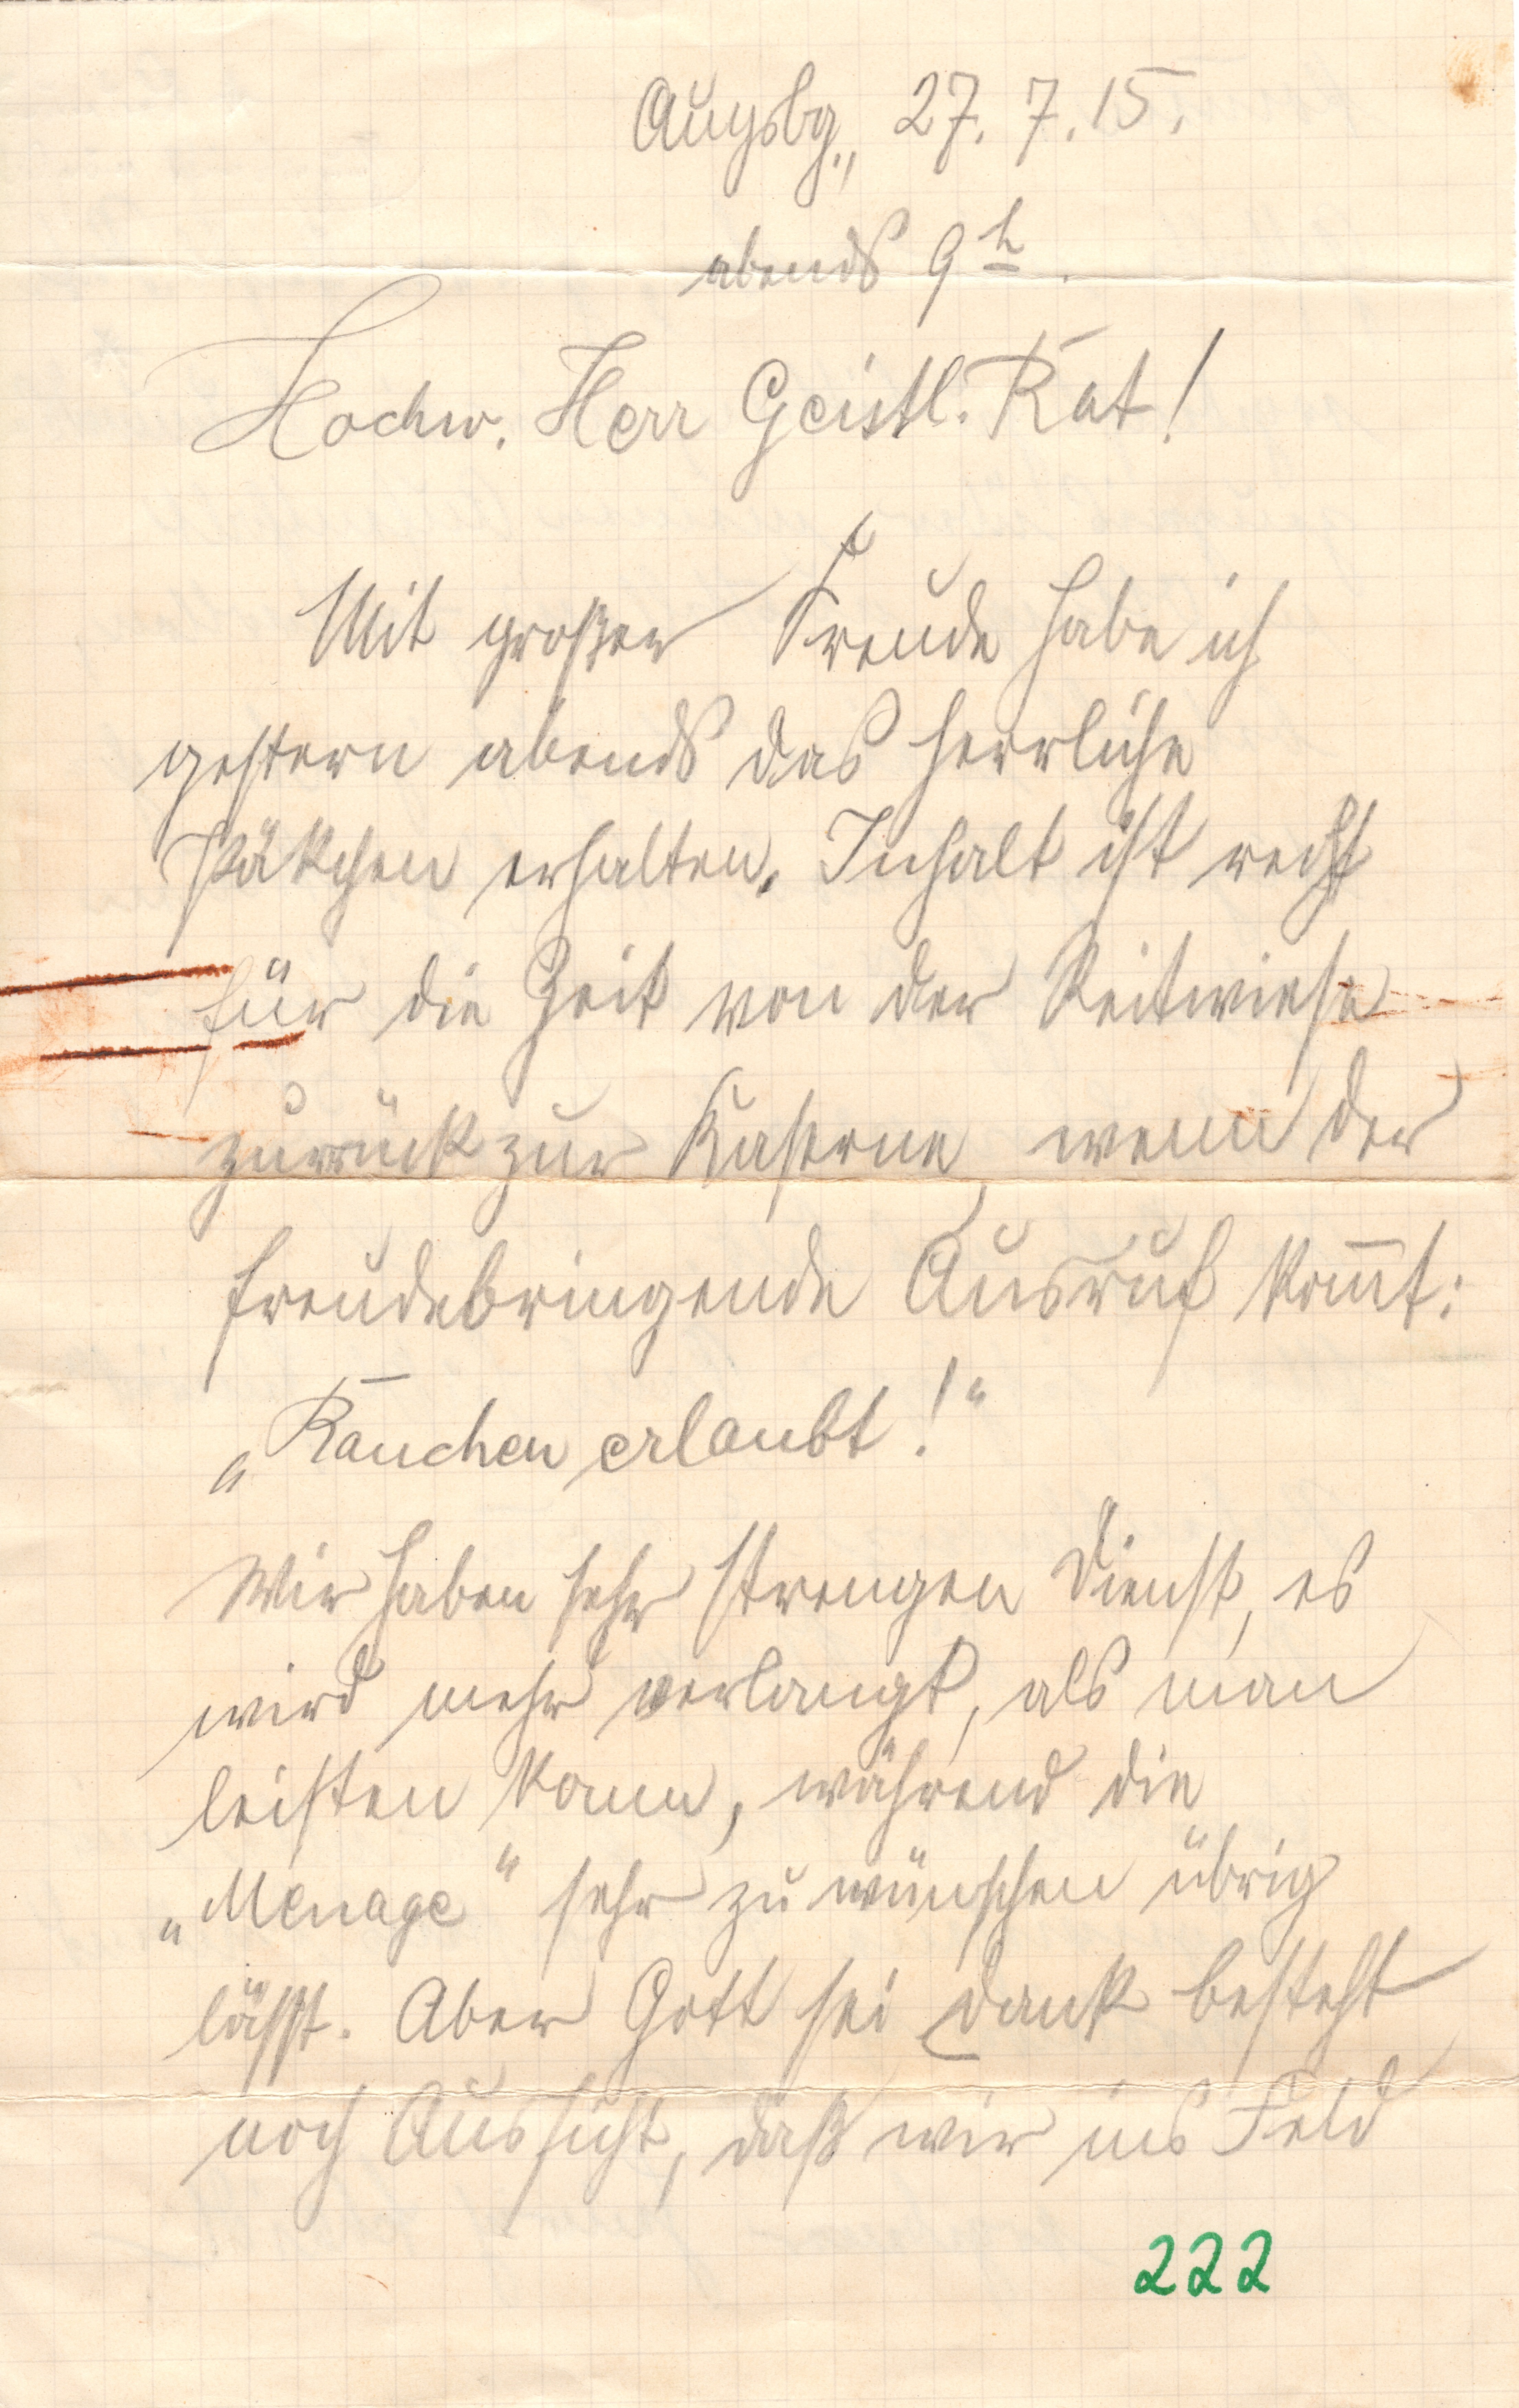 Augsbg., 27. 7. 15.
abends 9h.
Hochw. Herr Geistl. Rat!
Mit großer Freude habe ich
gestern abends das herrliche
Päkchen erhalten. Inhalt ist recht
für die Zeit von der Reitwiese
zurrück zur Kaserne, wenn der
freudebringende Ausruf kom̅t:
„Rauchen erlaubt!“
Wir haben sehr strengen Dienst, es
wird mehr verlangt, als man
leisten kann, während die
„Menage“ sehr zu wünschen übrig
läßt. Aber Gott sei Dank besteht
noch Aussicht, daß wir ins Feld
222